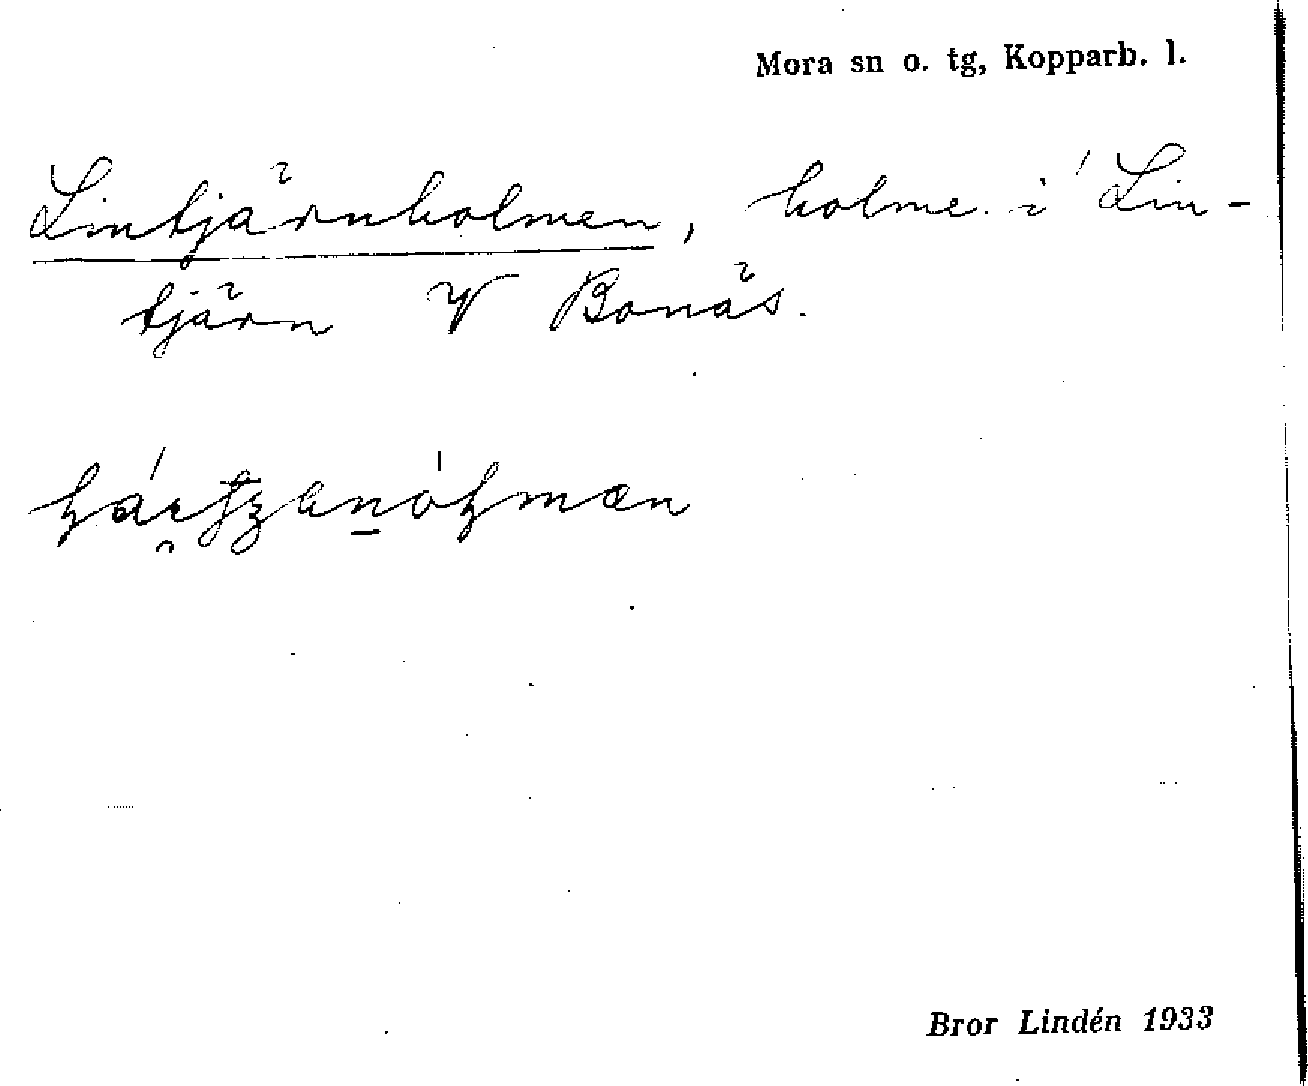 Mora sn o. tg, Kopparb. l.
Lintjärnholmen, holme i Lin-
tjärn V Bonäs.
Bror Lindén 1933